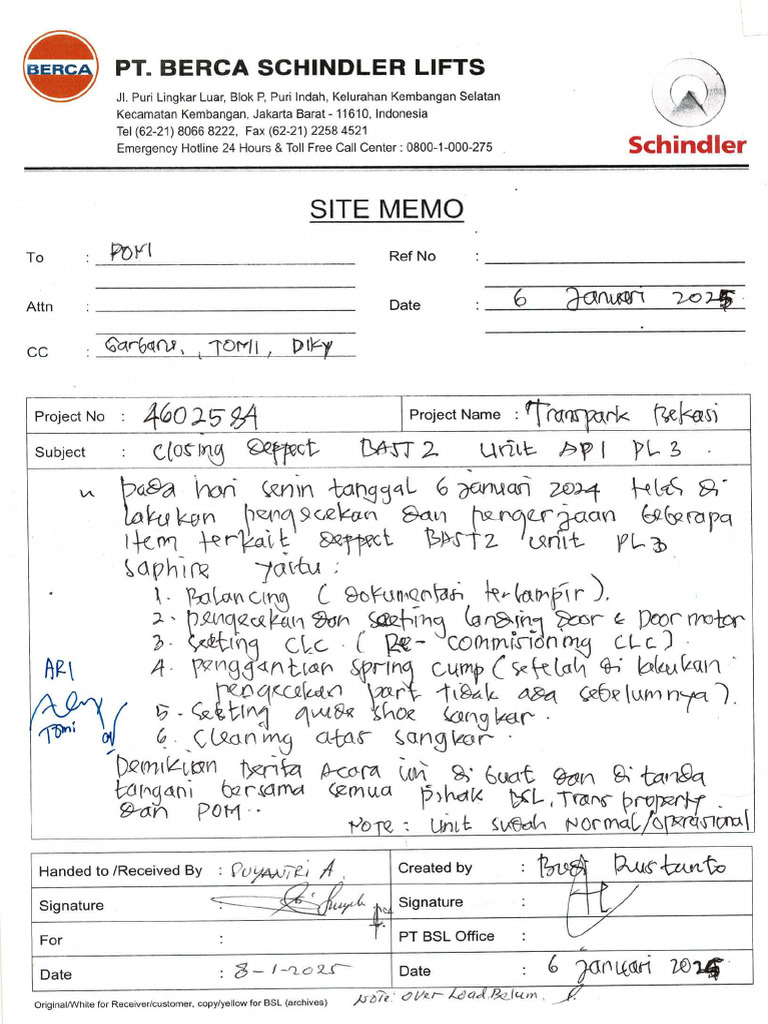 BERCA
PT. BERCA SCHINDLER LIFTS
Jl. Puri Lingkar Luar, Blok P, Puri Indah, Kelurahan Kembangan Selatan
Kecamatan Kembangan, Jakarta Barat - 11610, Indonesia
Tel (62-21) 8066 8222, Fax (62-21) 2258 4521
Emergency Hotline 24 Hours & Toll Free Call Center : 0800-1-000-275
Schindler
SITE MEMO
To : POM
Ref No :
Attn :
Date : 6 Januari 2025
CC : , TOMI, DIKY
Project No : 4602584
Project Name : Transpark Bekasi
Subject : Closing Deppect BAST 2 unit API PL 3.
pada hari senin tanggal 6 januari 2024 telah di
lakukan pengecekan dan pengerjaan beberapa
item terkait deppect BAST2 unit PL3
saphire yaitu :
1. Balancing (dokumentasi terlampir).
2. pengecekan dan seeting landing door & Door motor
3. seeting CLC. (Re-commisioning CLC)
4. penggantian spring cump (setelah di lakukan
pengecekan part tidak ada sebelumnya).
5. seeting guide shoe sangkar.
6. cleaning atas sangkar.
ARI
Tomi
Demikian Berita Acara ini di buat dan di tanda
tangani bersama semua pihak BSL, Trans property
dan POM.
NOTE : unit sudah Normal/operasional
Handed to /Received By : PUYANTRI A.
Created by : Rustanto
Signature :
Signature :
For :
PT BSL Office :
Date : 8-1-2025
Date : 6 Januari 2025
Original/White for Receiver/customer, copy/yellow for BSL (archives)
Note: Over Load Belum.